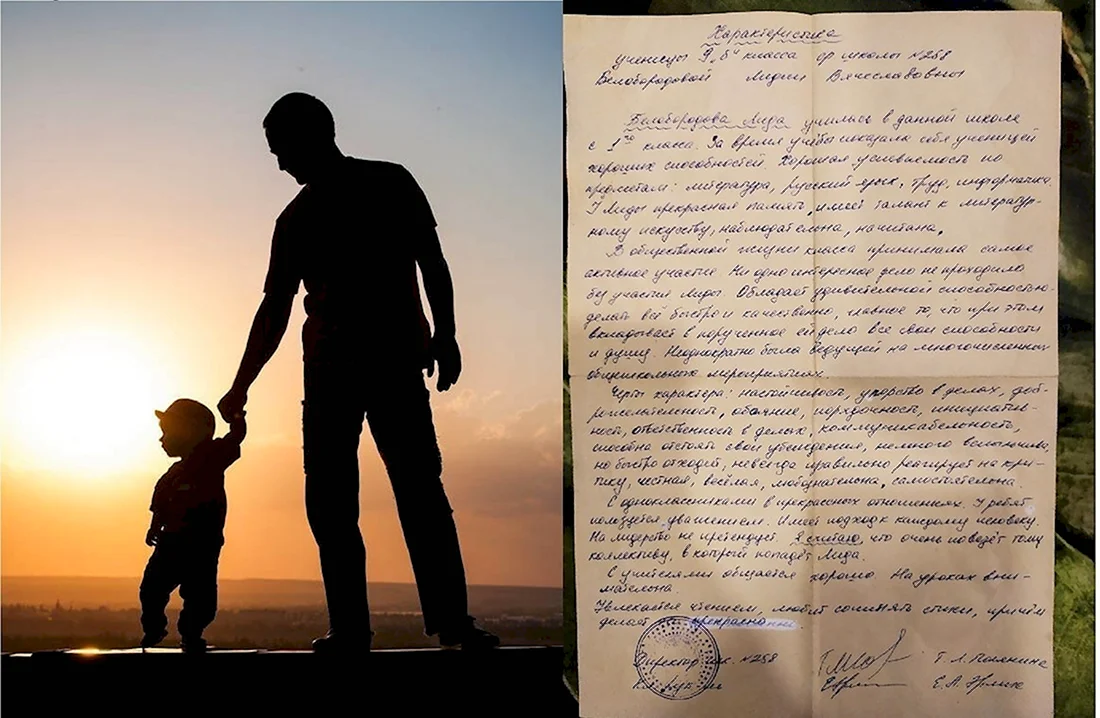 Характеристика
ученицы 9 „Б" класса ср школы №258
Белобородовой Лидии Вячеславовны
Белобородова Лида училась в данной школе
с 1го класса. За время учёбы показала себя ученицей
хороших способностей. Хорошая успеваемость по
предметам: литература, русский язык, труд, информатика.
У Лиды прекрасная память, имеет талант к литератур-
ному искусству, наблюдательна, начитана.
В общественной жизни класса принимала самое
активное участие. Ни одно интересное дело не проходило
без участия Лиды. Обладает удивительной способностью
делать всё быстро и качественно, главное то, что при этом
вкладывает в порученное ей дело все свои способности
и душу. Неоднократно была ведущей на многочисленных
общешкольных мероприятиях.
Черты характера: настойчивость, упорство в делах, доб-
рожелательность, обаяние, порядочность, инициатив-
ность, ответственность в делах, коммуникабельность,
способна отстоять свои убеждения, немного вспыльчива,
но быстро отходит, не всегда правильно реагирует на кри-
тику, честная, весёлая, любознательна, самостоятельна.
С одноклассниками в прекрасных отношениях. У ребят
пользуется уважением. Имеет подход к каждому человеку.
На лидерство не претендует. Я считаю, что очень повезёт тому
коллективу, в который попадёт Лида.
С учителями общается хорошо. На уроках вни-
мательна.
Увлекается чтением, любит сочинять стихи, причём
делает это прекрасно
Директор шк. №258 Т. Л.
Кл. рук-ль Е. А.